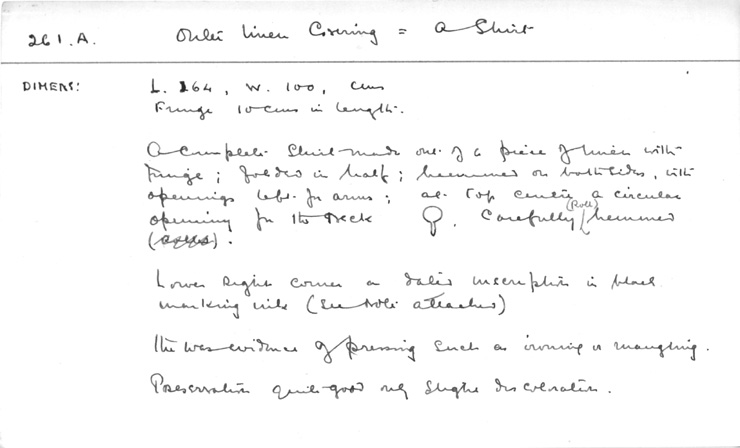 261.A. Outer linen Covering = a Shirt
DIMENS: L. 164, W. 100, cms
Fringe 10 cms in length.
A complete Shirt made out of a piece of linen with
Fringe; folded in half; hemmed on both sides, with
openings left for arms; at top centre a circular
opening for the neck . Carefully (Roll) hemmed
Lower right corner a dated inscription in black
marking ink (see note attached)
evidence of pressing such as ironing or mangling.
Preservation quite good only slight discoloration.